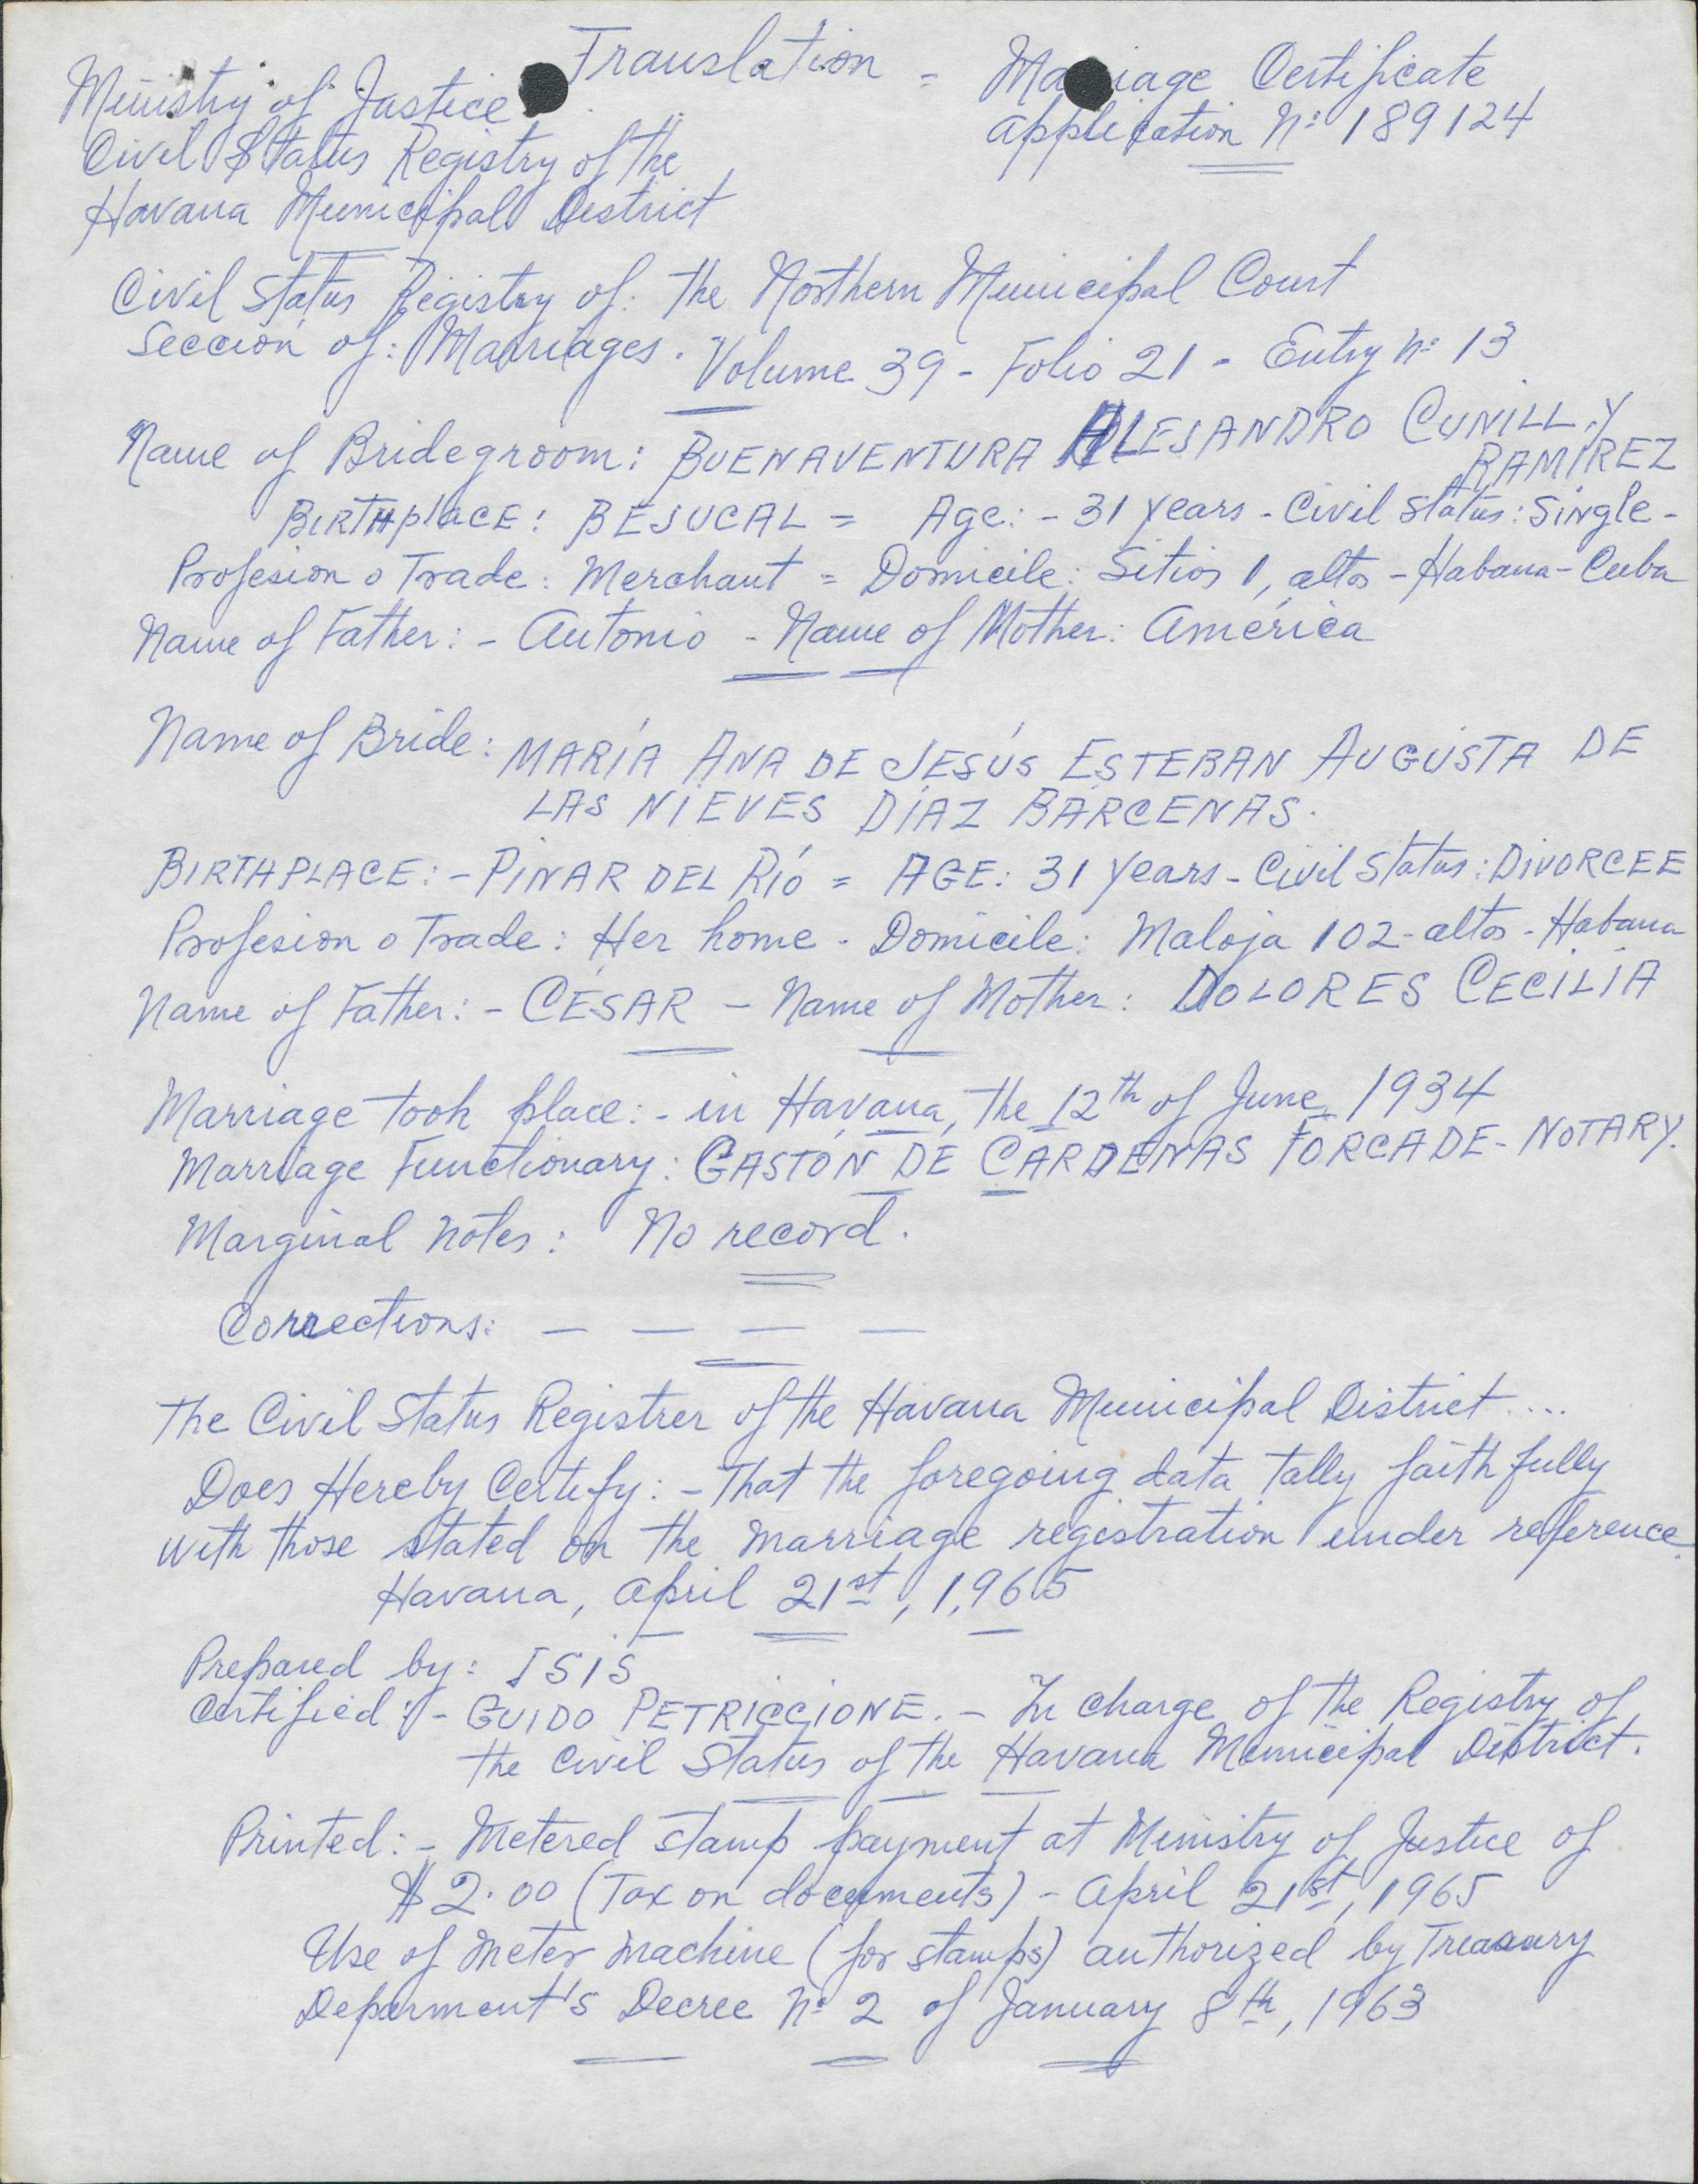 Translation = Marriage Certificate
Ministry of Justice
application Nº 189124
Civil Status Registry of the
Havana Municipal District
Civil Status Registry of: the Northern Municipal Court
Sección of: Marriages. Volume 39 - Folio 21 - Entry Nº 13
Name of Bridegroom: BUENAVENTURA ALEJANDRO CUNILL Y
RAMIREZ
BIRTHplACE: BEJUCAL = Age: - 31 years - Civil Status: Single -
Profesion o Trade: Merchant = Domicile: Sitios 1, altos - Habana - Cuba
Name of Father: - Antonio - Name of Mother: América
Name of Bride: MARÍA ANA DE JESÚS ESTEBAN AUGUSTA DE
LAS NIEVES DÍAZ BÁRCENAS.
BIRTHPLACE: - PINAR DEL RÍO = AGE: 31 years - Civil Status: DIVORCEE
Profesion o Trade: Her home - Domicile: Maloja 102 - altos - Habana
Name of Father: - CÉSAR - Name of Mother: DOLORES CECILIA
Marriage took place: - in Havana, the 12th of June 1934
Marriage Functionary: GASTÓN DE CÁRDENAS FORCADE - NOTARY.
Marginal notes: No record.
Corrections: — — — —
The Civil Status Registrer of the Havana Municipal District ....
Does Hereby Certify: - That the foregoing data tally faithfully
with those stated on the marriage registration under reference.
Havana, April 21st, 1,965
Prepared by: ISIS
Certified: - GUIDO PETRICCIONE. - In charge of the Registry of
the Civil Status of the Havana Municipal District.
Printed: - Metered stamp payment at Ministry of Justice of
$2.00 (Tax on documents) - April 21st, 1965
Use of Meter machine (for stamps) authorized by Treasury
Deparment's Decree Nº 2 of January 8th, 1963